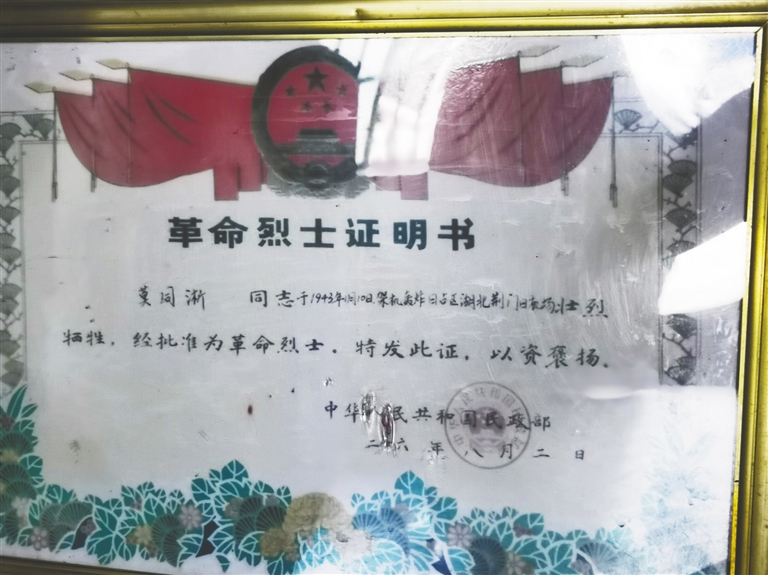 革命烈士证明书
莫同淅 同志于1943年10月10日架机轰炸日占区湖北荆门日机场壮烈
牺牲，经批准为革命烈士。特发此证，以资褒扬。
中华人民共和国民政部
二 六年八月二日